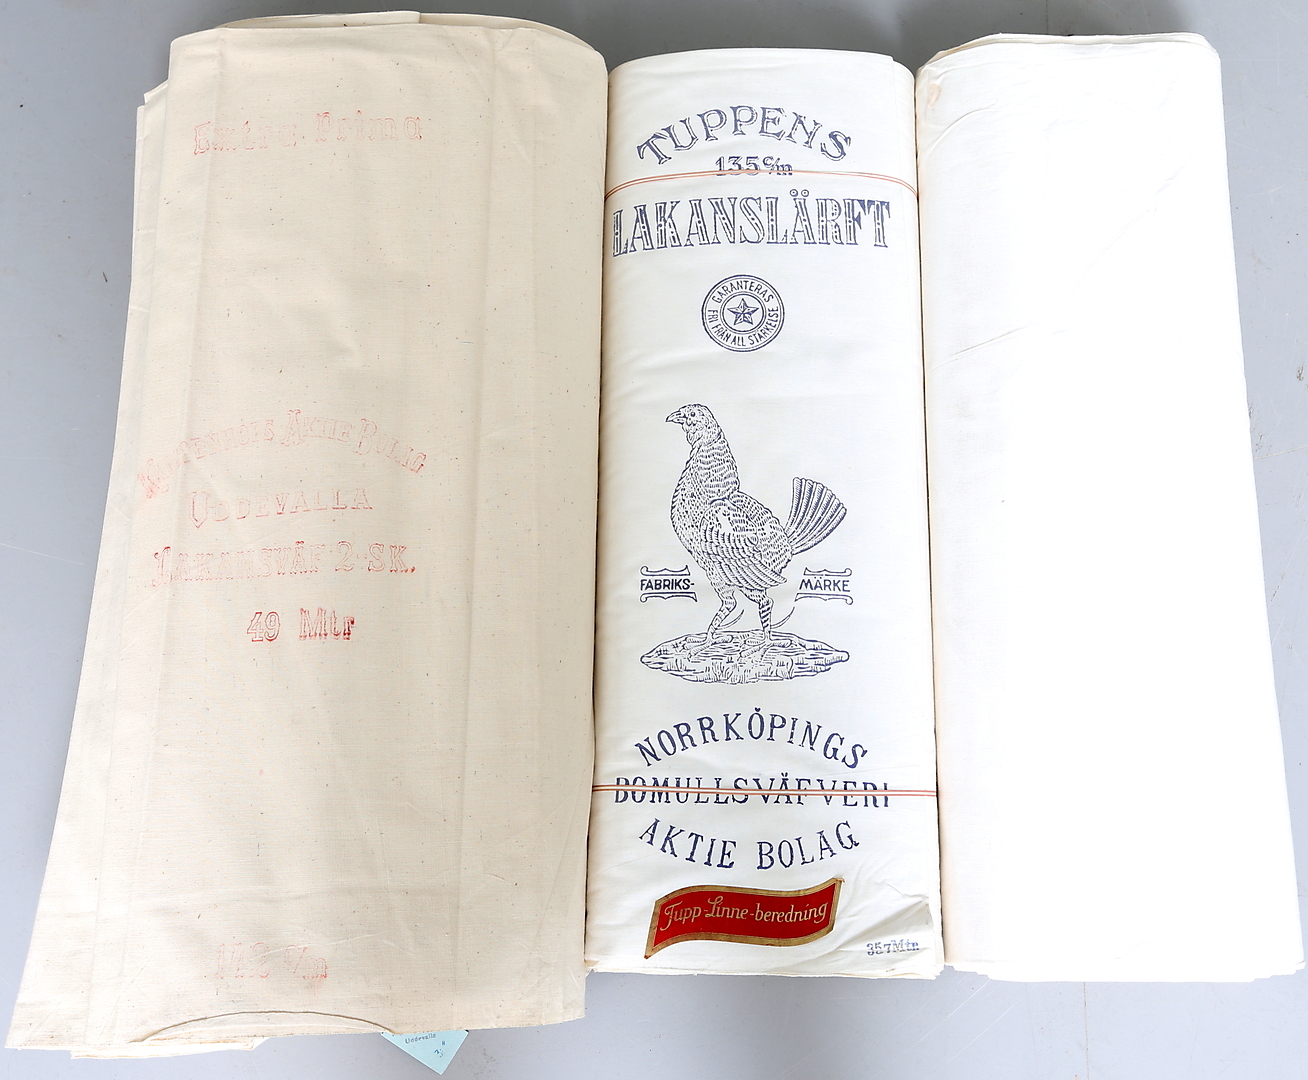 Extra Prima
AKTIE BOLAG
UDDEVALLA
LAKANSVÄF 2 SK.
49 Mtr
Uddevalla
TUPPENS
135 c/m
LAKANSLÄRFT
GARANTERAS
FRI FRÅN ALL STÄRKELSE
FABRIKS-
MÄRKE
NORRKÖPINGS
BOMULLSVÄFVERI
AKTIE BOLAG
Tupp-Linne-beredning
357 Mtr.